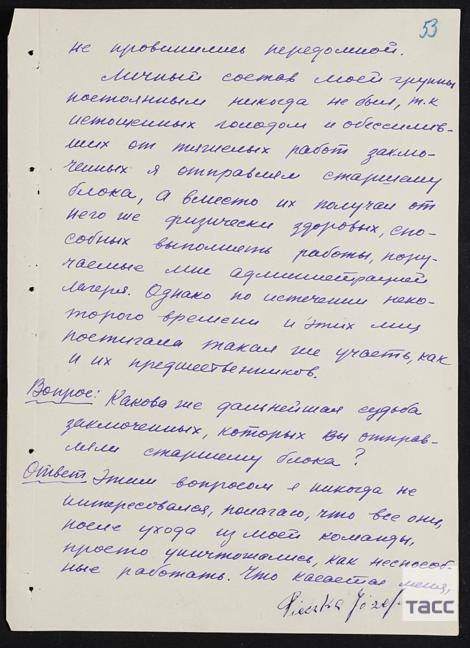 53
не провинились передомной.
Личный состав моей группы
постоянным никогда не был, т.к
истощенных голодом и обессилив-
ших от тяжелых работ заклю-
ченных я отправлял старшему
блока, а вместо их получал от
него же физически здоровых, спо-
собных выполнять работы, пору-
чаемые мне администрацией
лагеря. Однако по истечении неко-
торого времени и этих лиц
постигала такая же участь, как
и их предшественников.
Вопрос: Какова же дальнейшая судьба
заключенных, которых вы отправ-
ляли старшему блока?
Ответ Этим вопросом я никогда не
интересовался, полагаю, что все они,
после ухода из моей команды,
просто уничтожались, как неспособ-
ные работать. Что касается меня,
Józef
ТАСС